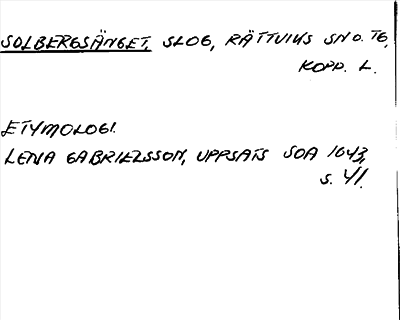 SOLBERGSÄNGET, SLOG, RÄTTVIKS SN O. TG,
KOPP. L.
ETYMOLOGI.
LENA GABRIELSSON, UPPSATS SOA 1643,
S. 41.